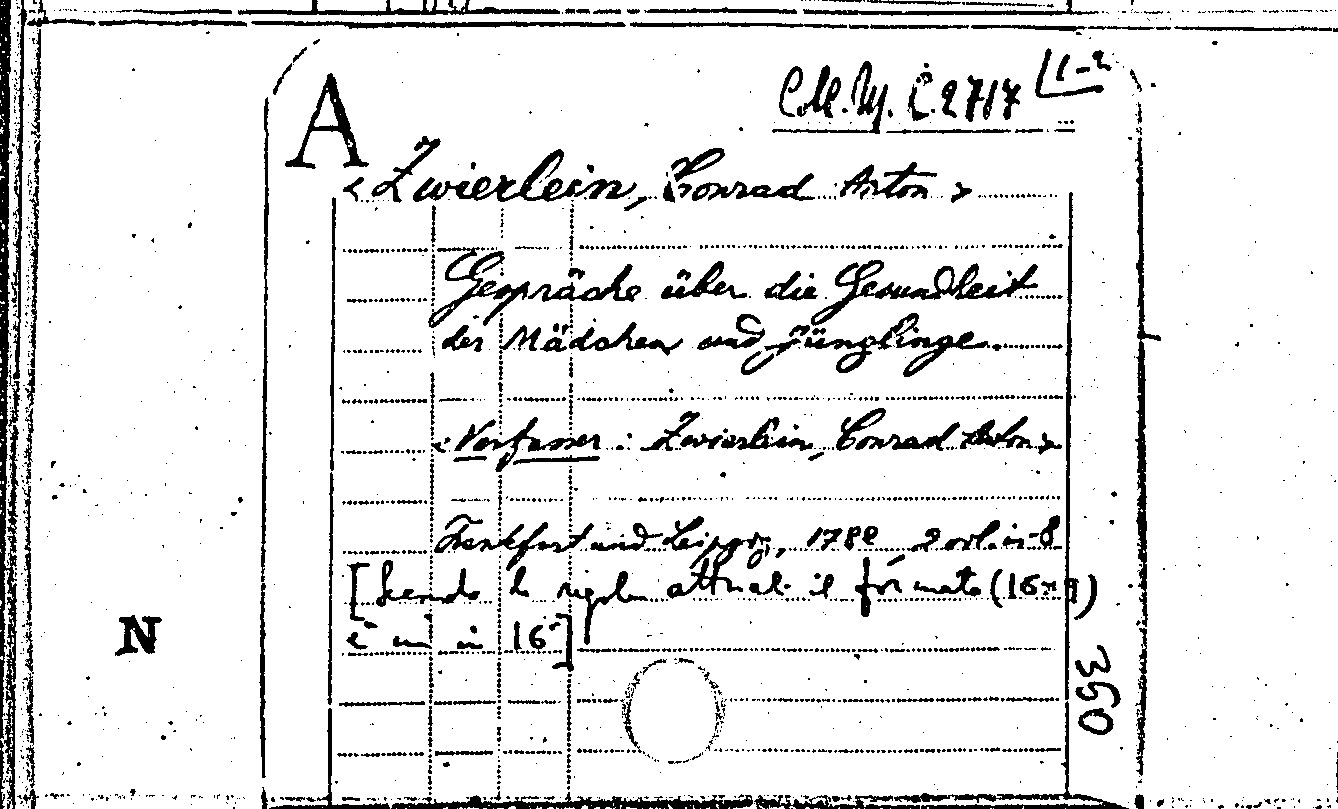 A
C.M.M. C. 2717 1-2
< Zwierlein, Conrad Anton >
Gespräche über die Gesundheit
der Mädchen und Jünglinge.
<Verfasser: Zwierlein, Conrad Anton>
Frankfurt und Leipzig, 1788 2 vol. in-8
[Secondo le regole attuali il formato (16×9)
è in 16°]
N
350